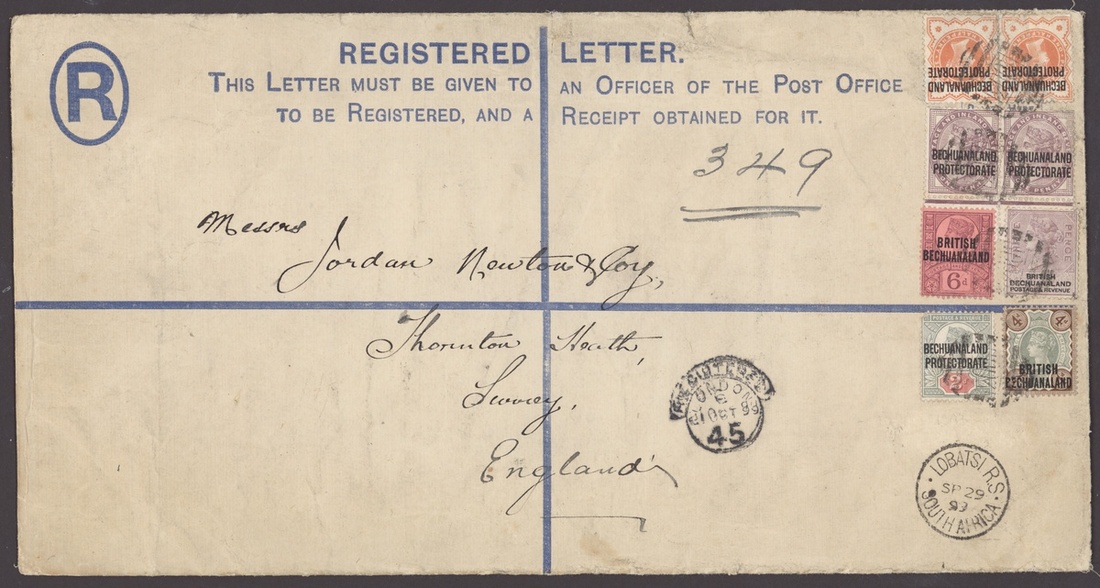 R
REGISTERED LETTER.
THIS LETTER MUST BE GIVEN TO AN OFFICER OF THE POST OFFICE
TO BE REGISTERED, AND A RECEIPT OBTAINED FOR IT.
349
Messrs
Jordan Newton & Coy,
Thornton Heath,
Surrey,
England
BECHUANALAND PROTECTORATE
BECHUANALAND PROTECTORATE
BECHUANALAND PROTECTORATE
BECHUANALAND PROTECTORATE
BRITISH BECHUANALAND
6d
PENCE
BRITISH BECHUANALAND
POSTAGE & REVENUE
POSTAGE & REVENUE
BECHUANALAND PROTECTORATE
2d
4d 4d
BRITISH BECHUANALAND
REGISTERED
LONDON
OCT 99
45
LOBATSI R.S.
SP 29
99
SOUTH AFRICA